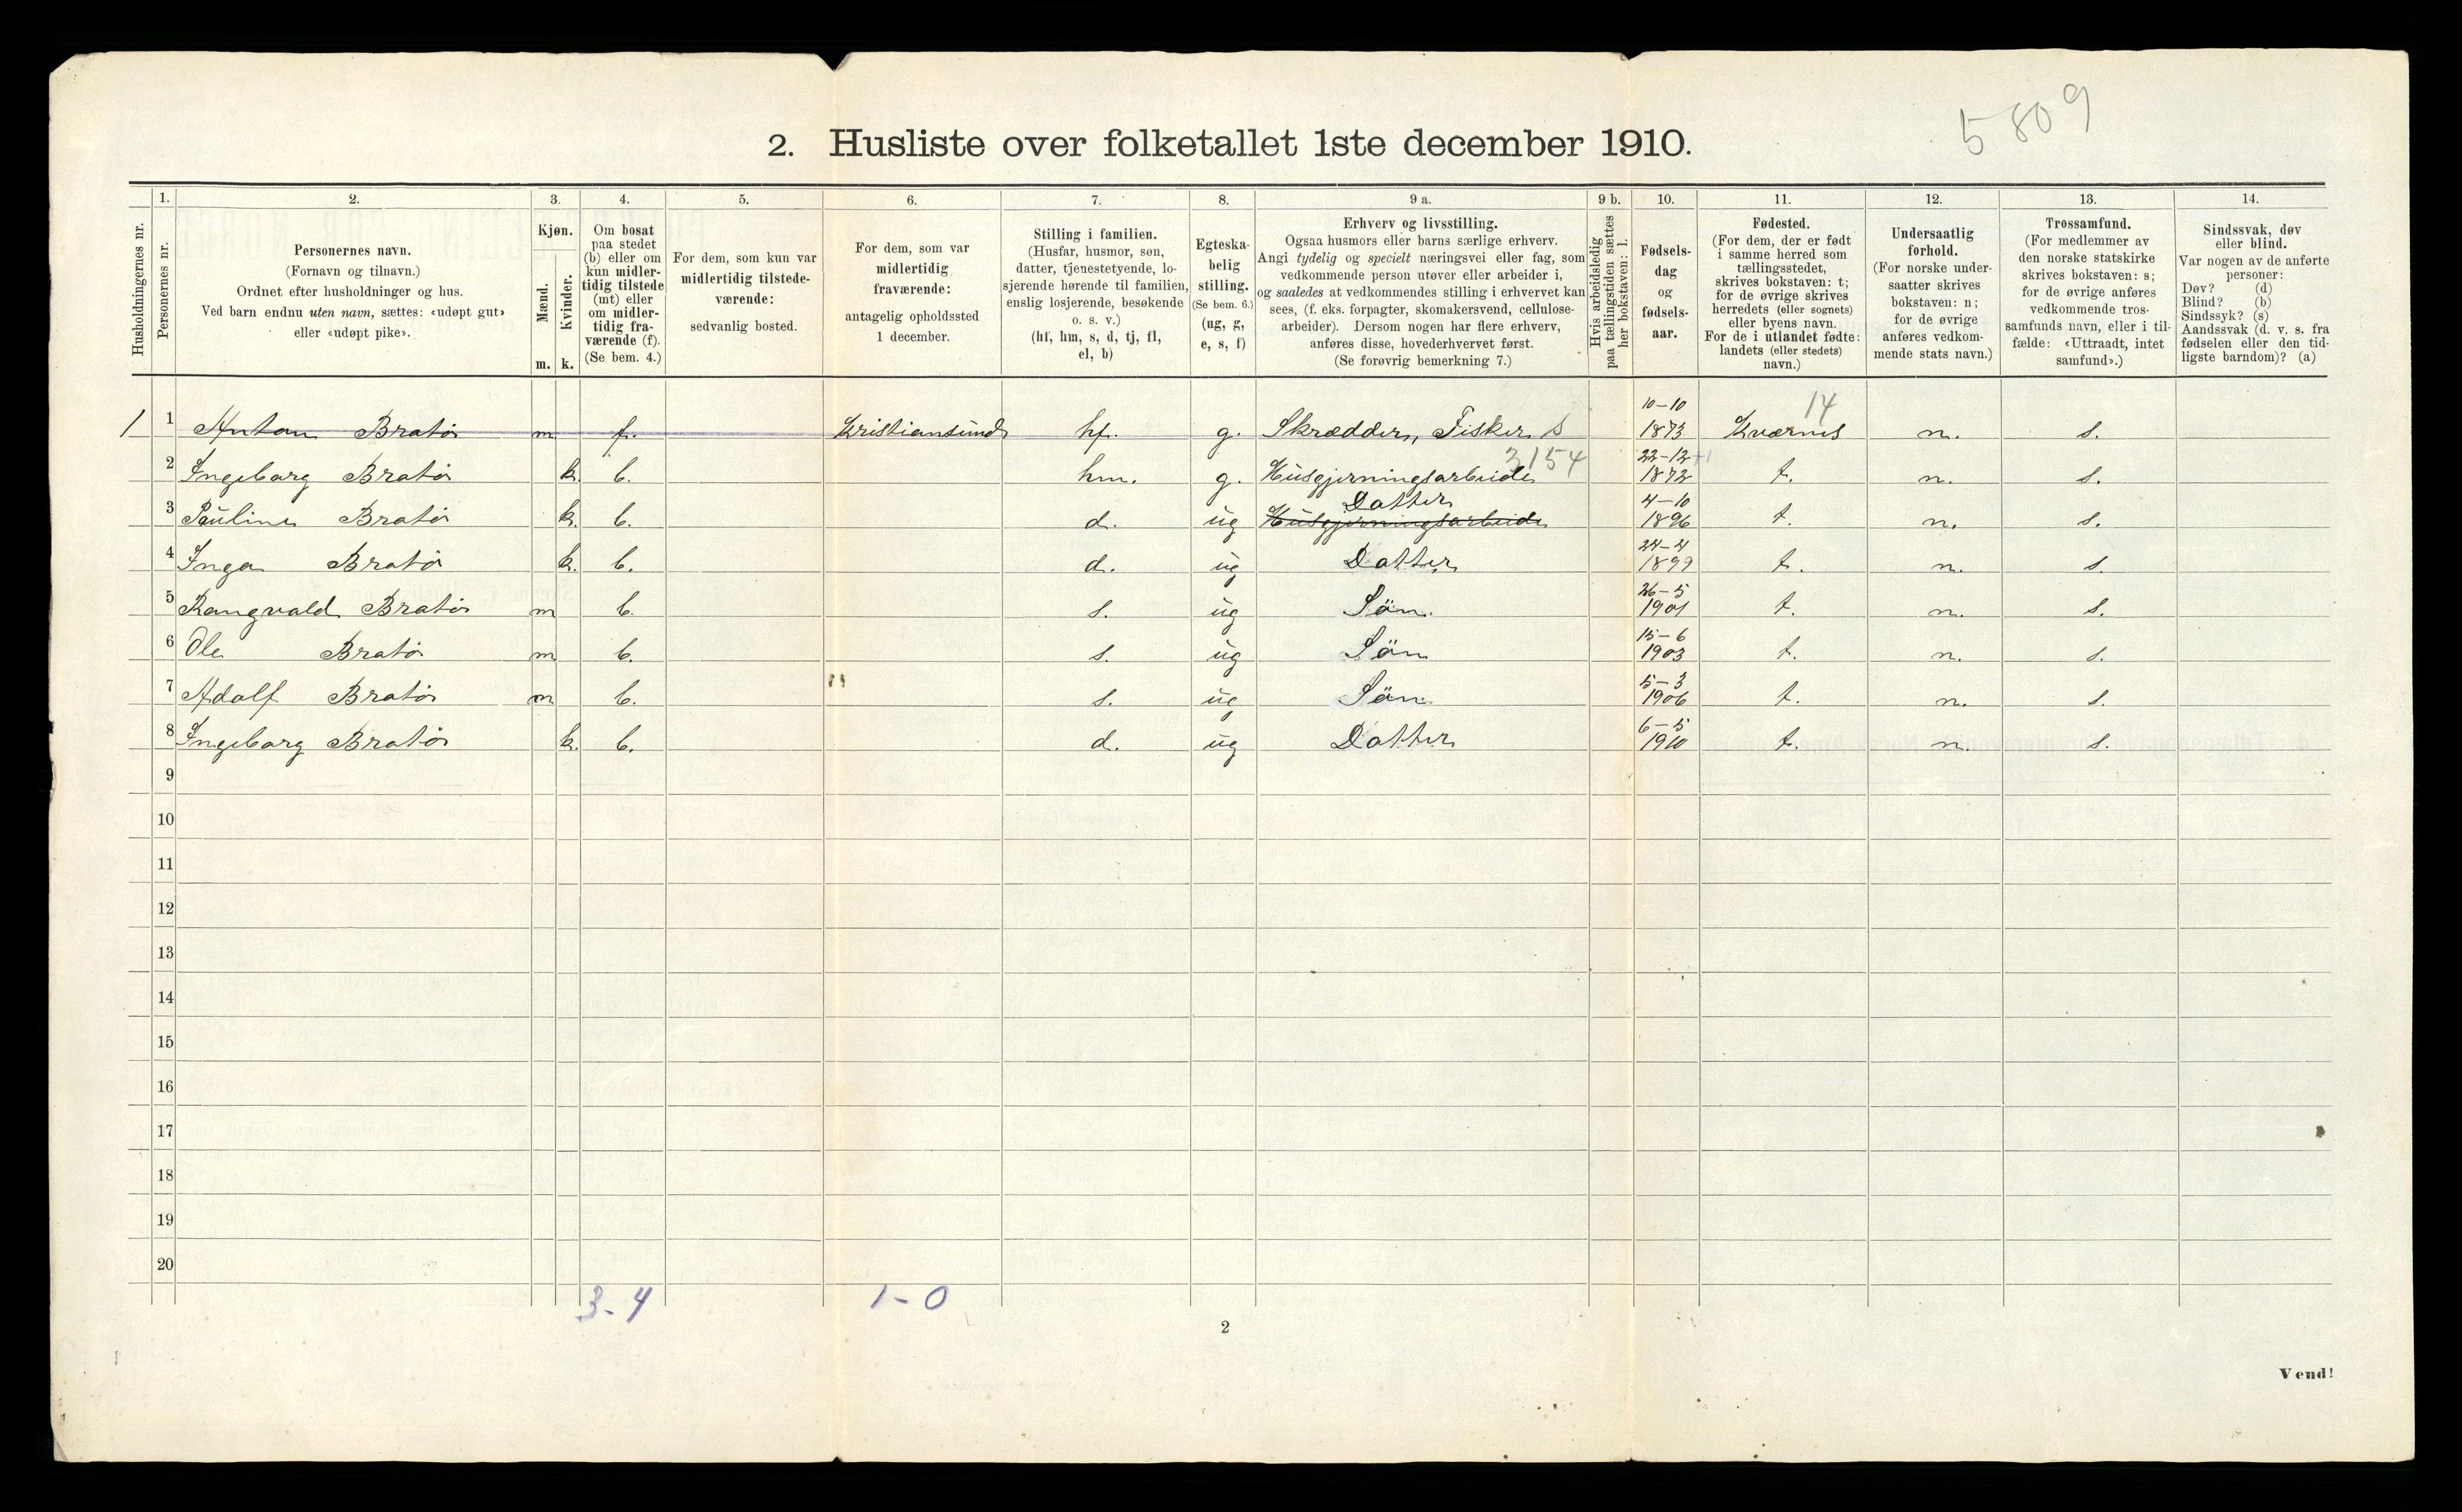 5809
2. Husliste over folketallet 1ste december 1910.
Husholdningernes nr.
1.
Personernes nr.
2.
Personernes navn.
(Fornavn og tilnavn.)
Ordnet efter husholdninger og hus.
Ved barn endnu uten navn, sættes: «udøpt gut»
eller «udøpt pike».
3.
Kjøn.
Mænd.
Kvinder.
m. k.
4.
Om bosat
paa stedet
(b) eller om
kun midler-
tidig tilstede
(mt) eller
om midler-
tidig fra-
værende (f).
(Se bem. 4.)
5.
For dem, som kun var
midlertidig tilstede-
værende:
sedvanlig bosted.
6.
For dem, som var
midlertidig
fraværende:
antagelig opholdssted
1 december.
7.
Stilling i familien.
(Husfar, husmor, søn,
datter, tjenestetyende, lo-
sjerende hørende til familien,
enslig losjerende, besøkende
o. s. v.)
(hf, hm, s, d, tj, fl,
el, b)
8.
Egteska-
belig
stilling.
(Se bem. 6.)
(ug, g,
e, s, f)
9 a.
Erhverv og livsstilling.
Ogsaa husmors eller barns særlige erhverv.
Angi tydelig og specielt næringsvei eller fag, som
vedkommende person utøver eller arbeider i,
og saaledes at vedkommendes stilling i erhvervet kan
sees, (f. eks. forpagter, skomakersvend, cellulose-
arbeider). Dersom nogen har flere erhverv,
anføres disse, hovederhvervet først.
(Se forøvrig bemerkning 7.)
9 b.
Hvis arbeidsledig
paa tællingstiden sættes
her bokstaven: l.
10.
Fødsels-
dag
og
fødsels-
aar.
11.
Fødested.
(For dem, der er født
i samme herred som
tællingsstedet,
skrives bokstaven: t;
for de øvrige skrives
herredets (eller sognets)
eller byens navn.
For de i utlandet fødte:
landets (eller stedets)
navn.)
12.
Undersaatlig
forhold.
(For norske under-
saatter skrives
bokstaven: n;
for de øvrige
anføres vedkom-
mende stats navn.)
13.
Trossamfund.
(For medlemmer av
den norske statskirke
skrives bokstaven: s;
for de øvrige anføres
vedkommende tros-
samfunds navn, eller i til-
fælde: «Uttraadt, intet
samfund».)
14.
Sindssvak, døv
eller blind.
Var nogen av de anførte
personer:
Døv? (d)
Blind? (b)
Sindssyk? (s)
Aandssvak (d. v. s. fra
fødselen eller den tid-
ligste barndom)? (a)
1 1 Anton Bratøi m f. Kristiansund hf. g. Skrædder, Fisker s 10-10 1873 Kværnes 14 n. s.
2 Ingeborg Bratøi k. b. hm. g. Husgjerningsarbeide 3154 22-12 1872 t. n. s.
3 Pauline Bratøi k. b. d. ug Datter Husgjerningsarbeide 4-10 1896 t. n. s.
4 Inga Bratøi k. b. d. ug Datter 24-4 1899 t. n. s.
5 Rangvald Bratøi m b. s. ug Sön. 26-5 1901 t. n. s.
6 Ole Bratøi m b. s. ug Sön 15-6 1903 t. n. s.
7 Adolf Bratøi m b. s. ug Sön 5-3 1906 t. n. s.
8 Ingeborg Bratøi k. b. d. ug Datter 6-5 1910 t. n. s.
9
10
11
12
13
14
15
16
17
18
19
20
3-4 1-0
2
Vend!